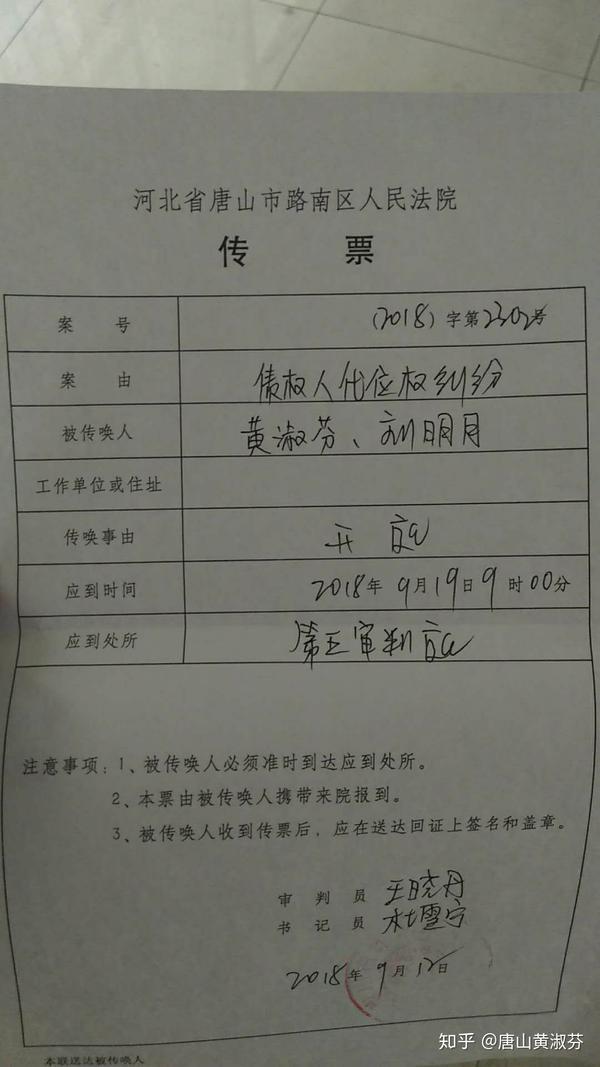 河北省唐山市路南区人民法院
传 票
案 号 (2018)字第2302号
案 由 债权人代位权纠纷
被传唤人 黄淑芬、刘明月
工作单位或住址
传唤事由 开庭
应到时间 2018年9月19日9时00分
应到处所 第三审判庭
注意事项:1、被传唤人必须准时到达应到处所。
2、本票由被传唤人携带来院报到。
3、被传唤人收到传票后,应在送达回证上签名和盖章。
审 判 员 王晓丹
书 记 员 杜雪宁
2018年9月12日
本联送达被传唤人
知乎 @唐山黄淑芬